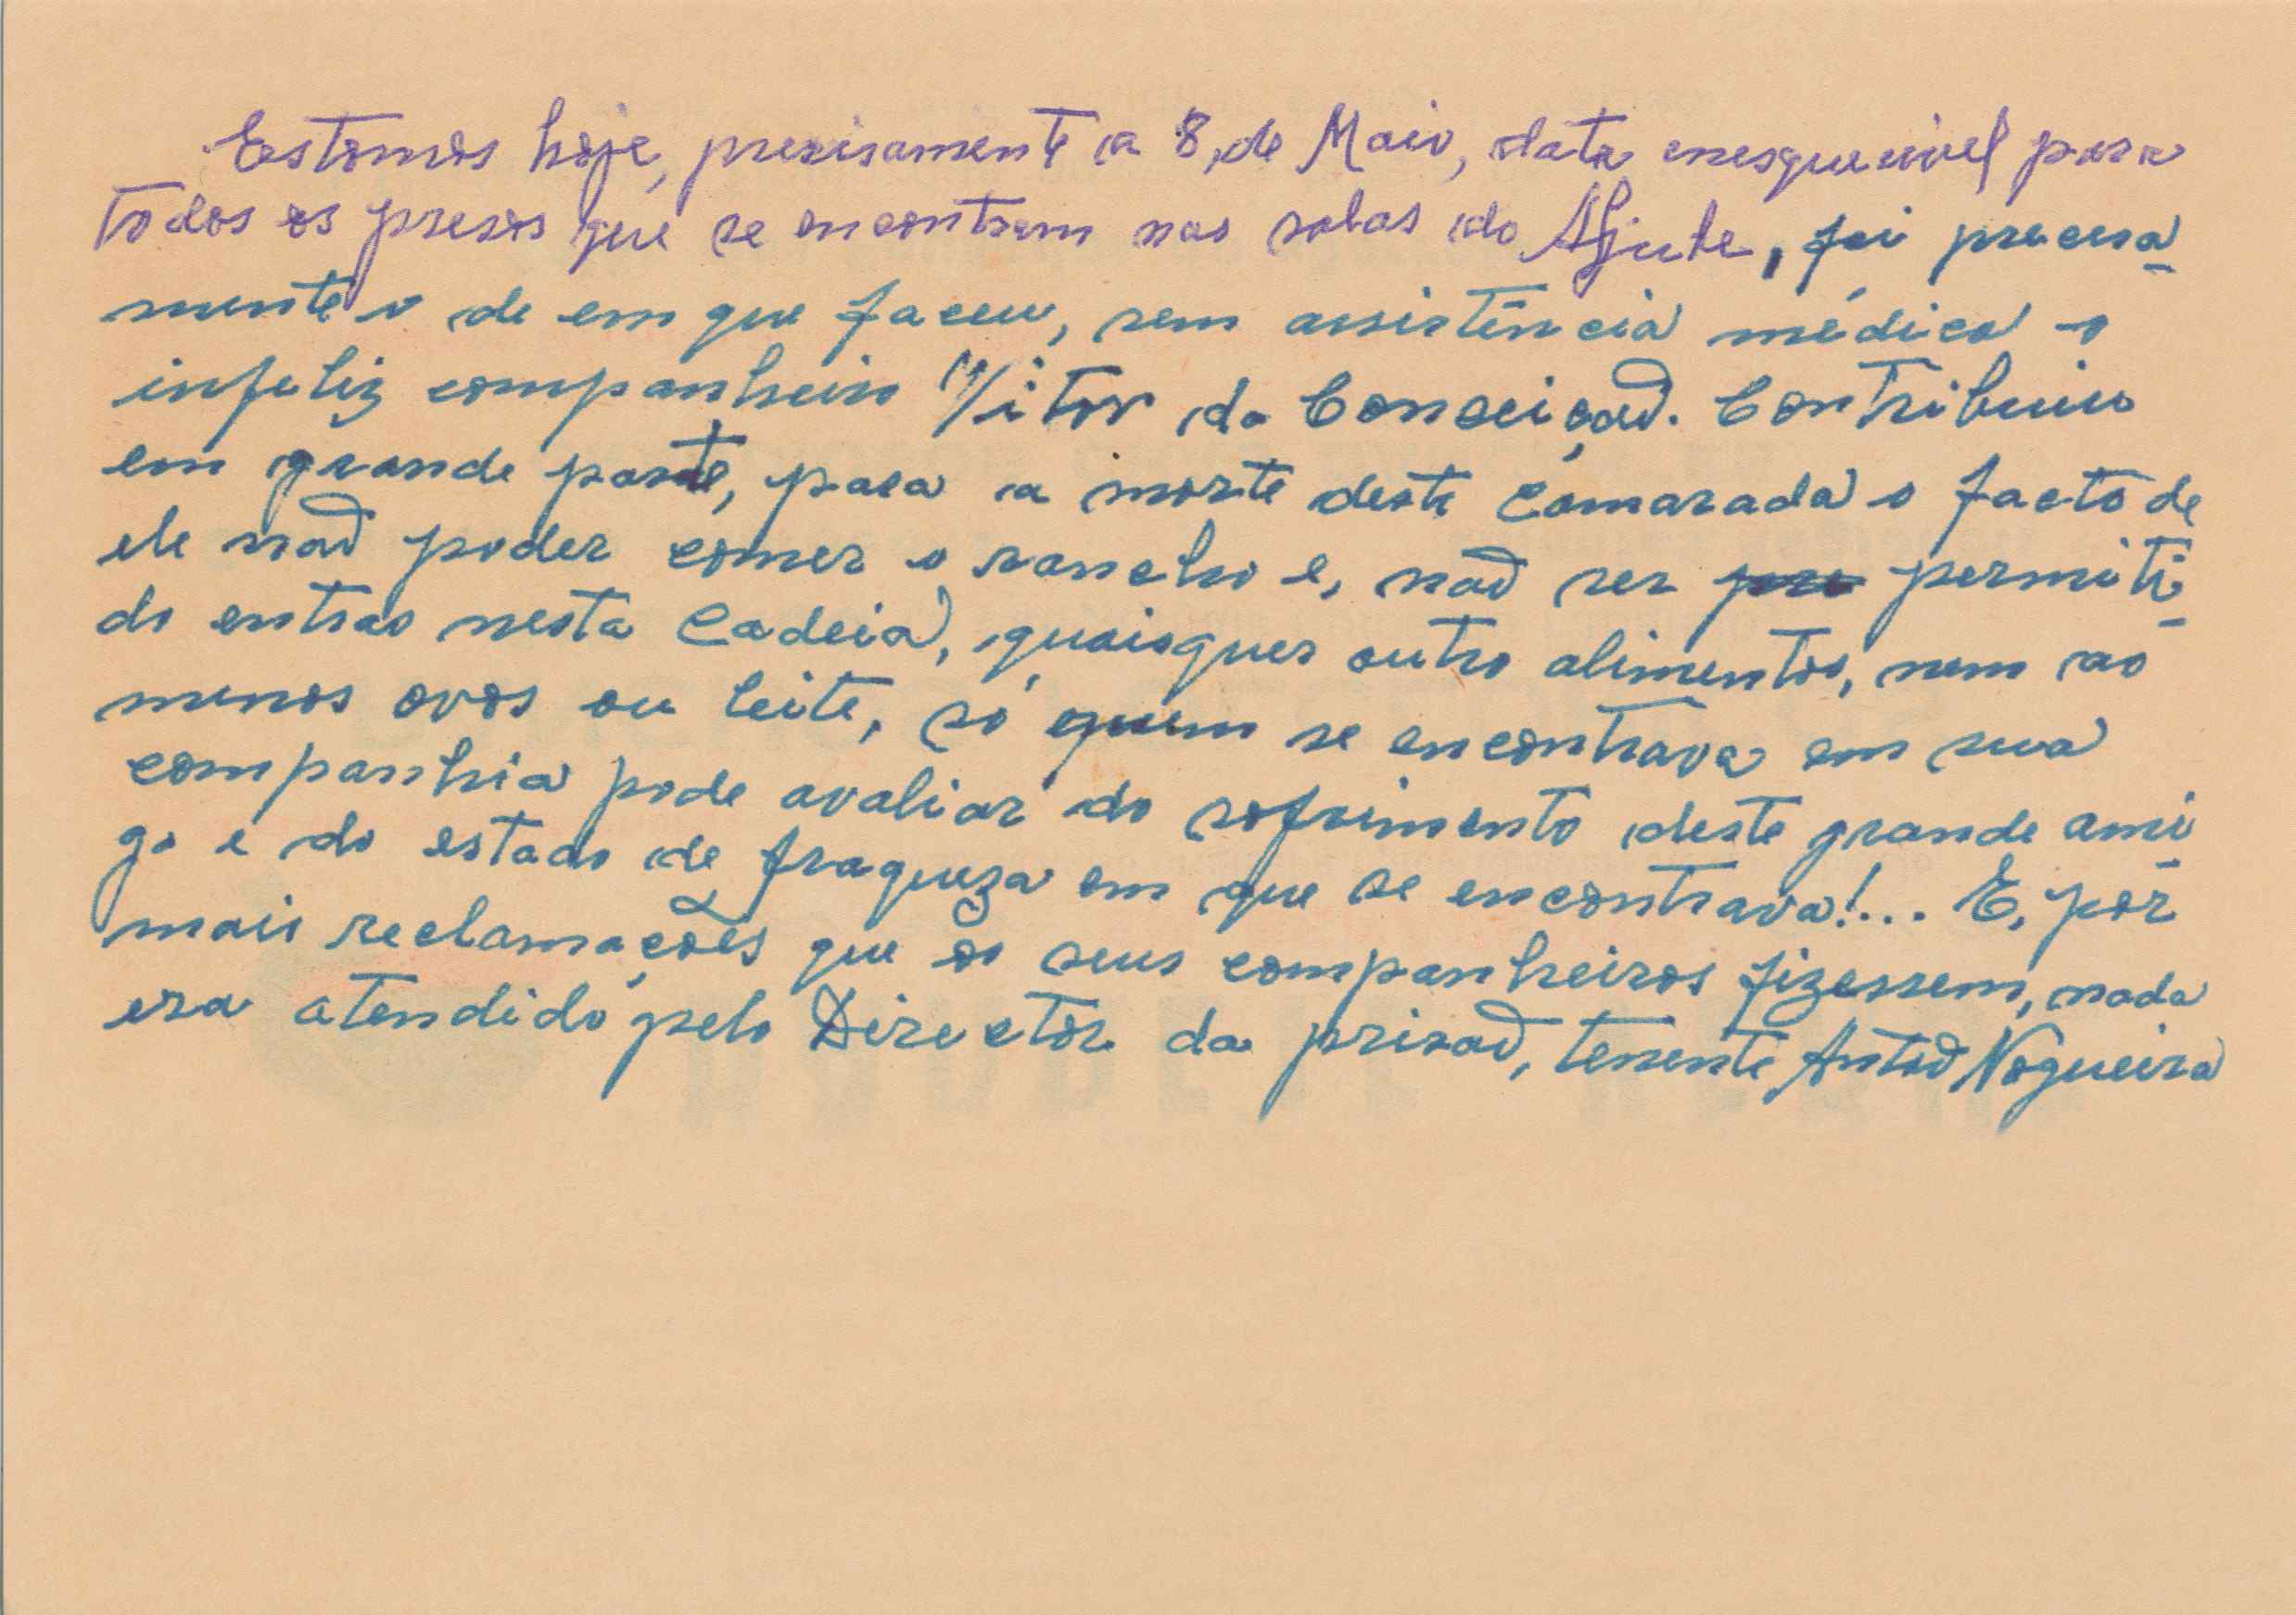 Estamos hoje, precisamente a 8, de Maio, data enesquecivel para
todos os presos que se encontram nas salas do Aljube, foi precesa-
mente o de em que faceu, sem assistência médica o
infeliz companheiro Vitor da Conceição. Contribuiu
em grande parte, para a morte deste Camarada o facto de
ele não poder comer o rancho e, não ser permiti-
do entrar nesta Cadeia, quaisquer outro alimentos, nem ao
menos ovos ou leite, só quem se encontrava em sua
companhia pode avaliar do sofrimento deste grande ami-
go e do estado de fraqueza em que se encontrava!... E, por
mais reclamações que os seus companheiros fizessem, nada
era atendido pelo Director da prisão, tenente Antão Nogueira